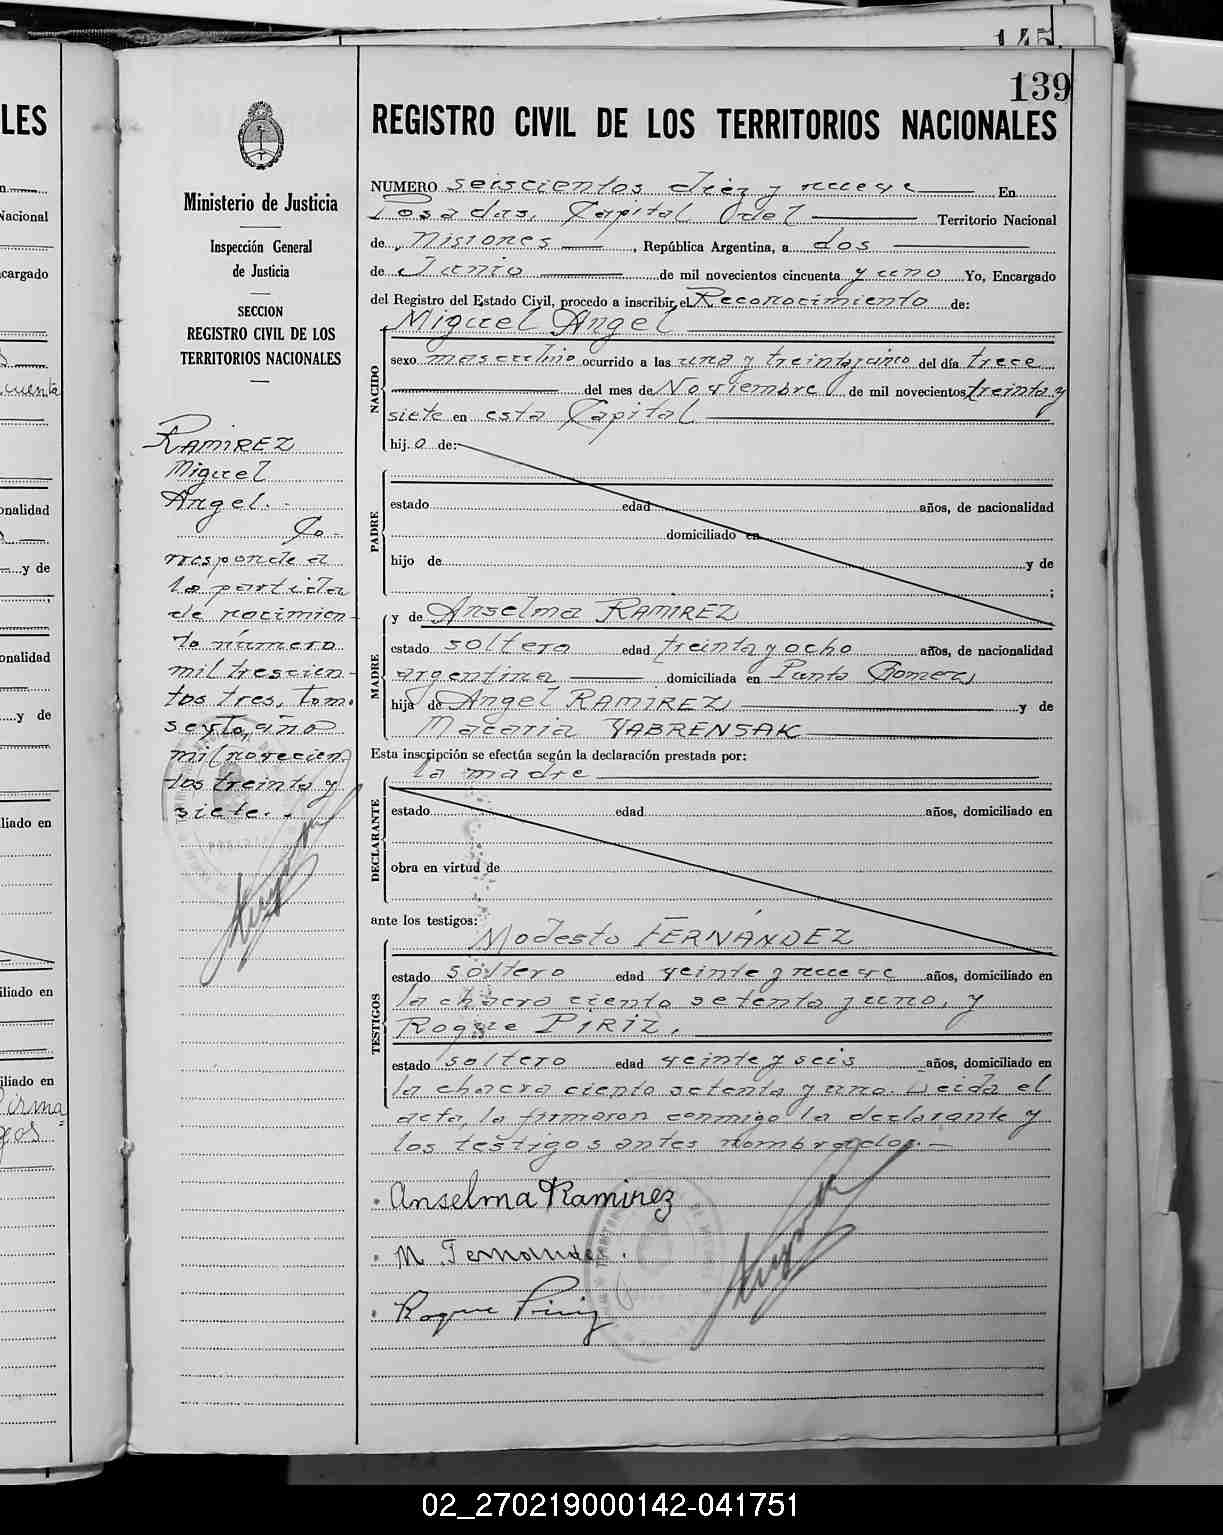 145
139
LES
REGISTRO CIVIL DE LOS TERRITORIOS NACIONALES
Ministerio de Justicia
Inspección General
de Justicia
SECCION
REGISTRO CIVIL DE LOS
TERRITORIOS NACIONALES
RAMIREZ
Miguel
Angel.
Co-
rresponde a
la partida
de nacimien-
to número
mil trescien-
tos tres, tom.
sexto, año
mil novecien
tos treinta y
siete.
NUMERO seiscientos diez y nueve En
Posadas, Capital del Territorio Nacional
de Misiones, República Argentina, a dos
de Junio de mil novecientos cincuenta y uno Yo, Encargado
del Registro del Estado Civil, procedo a inscribir el Reconocimiento de:
Miguel Angel
NACIDO
sexo masculino ocurrido a las una y treintaycinco del día trece
del mes de Noviembre de mil novecientos treinta y
siete en esta Capital
hijo de:
PADRE
estado edad años, de nacionalidad
domiciliado en
hijo de y de
;
y de Anselma RAMIREZ
MADRE
estado soltera edad treinta y ocho años, de nacionalidad
argentina domiciliada en Punta Gomez,
hija de Angel RAMIREZ, y de
Macaria YABRENSAK
Esta inscripción se efectúa según la declaración prestada por:
la madre
DECLARANTE
estado edad años, domiciliado en
obra en virtud de
ante los testigos:
Modesto FERNÁNDEZ
TESTIGOS
estado soltero edad veinte y nueve años, domiciliado en
la chacra ciento setenta y uno, y
Roque PIRIZ,
estado soltero edad veinte y seis años, domiciliado en
la chacra ciento setenta y uno. Leida el
acta, la firmaron conmigo la declarante y
los testigos antes nombrados.
Anselma Ramirez
M Fernandez.
Roque Piriz
Nacional
cargado
cuenta
onalidad
y de
onalidad
y de
liado en
iliado en
iliado en
firma
gos
02_270219000142-041751